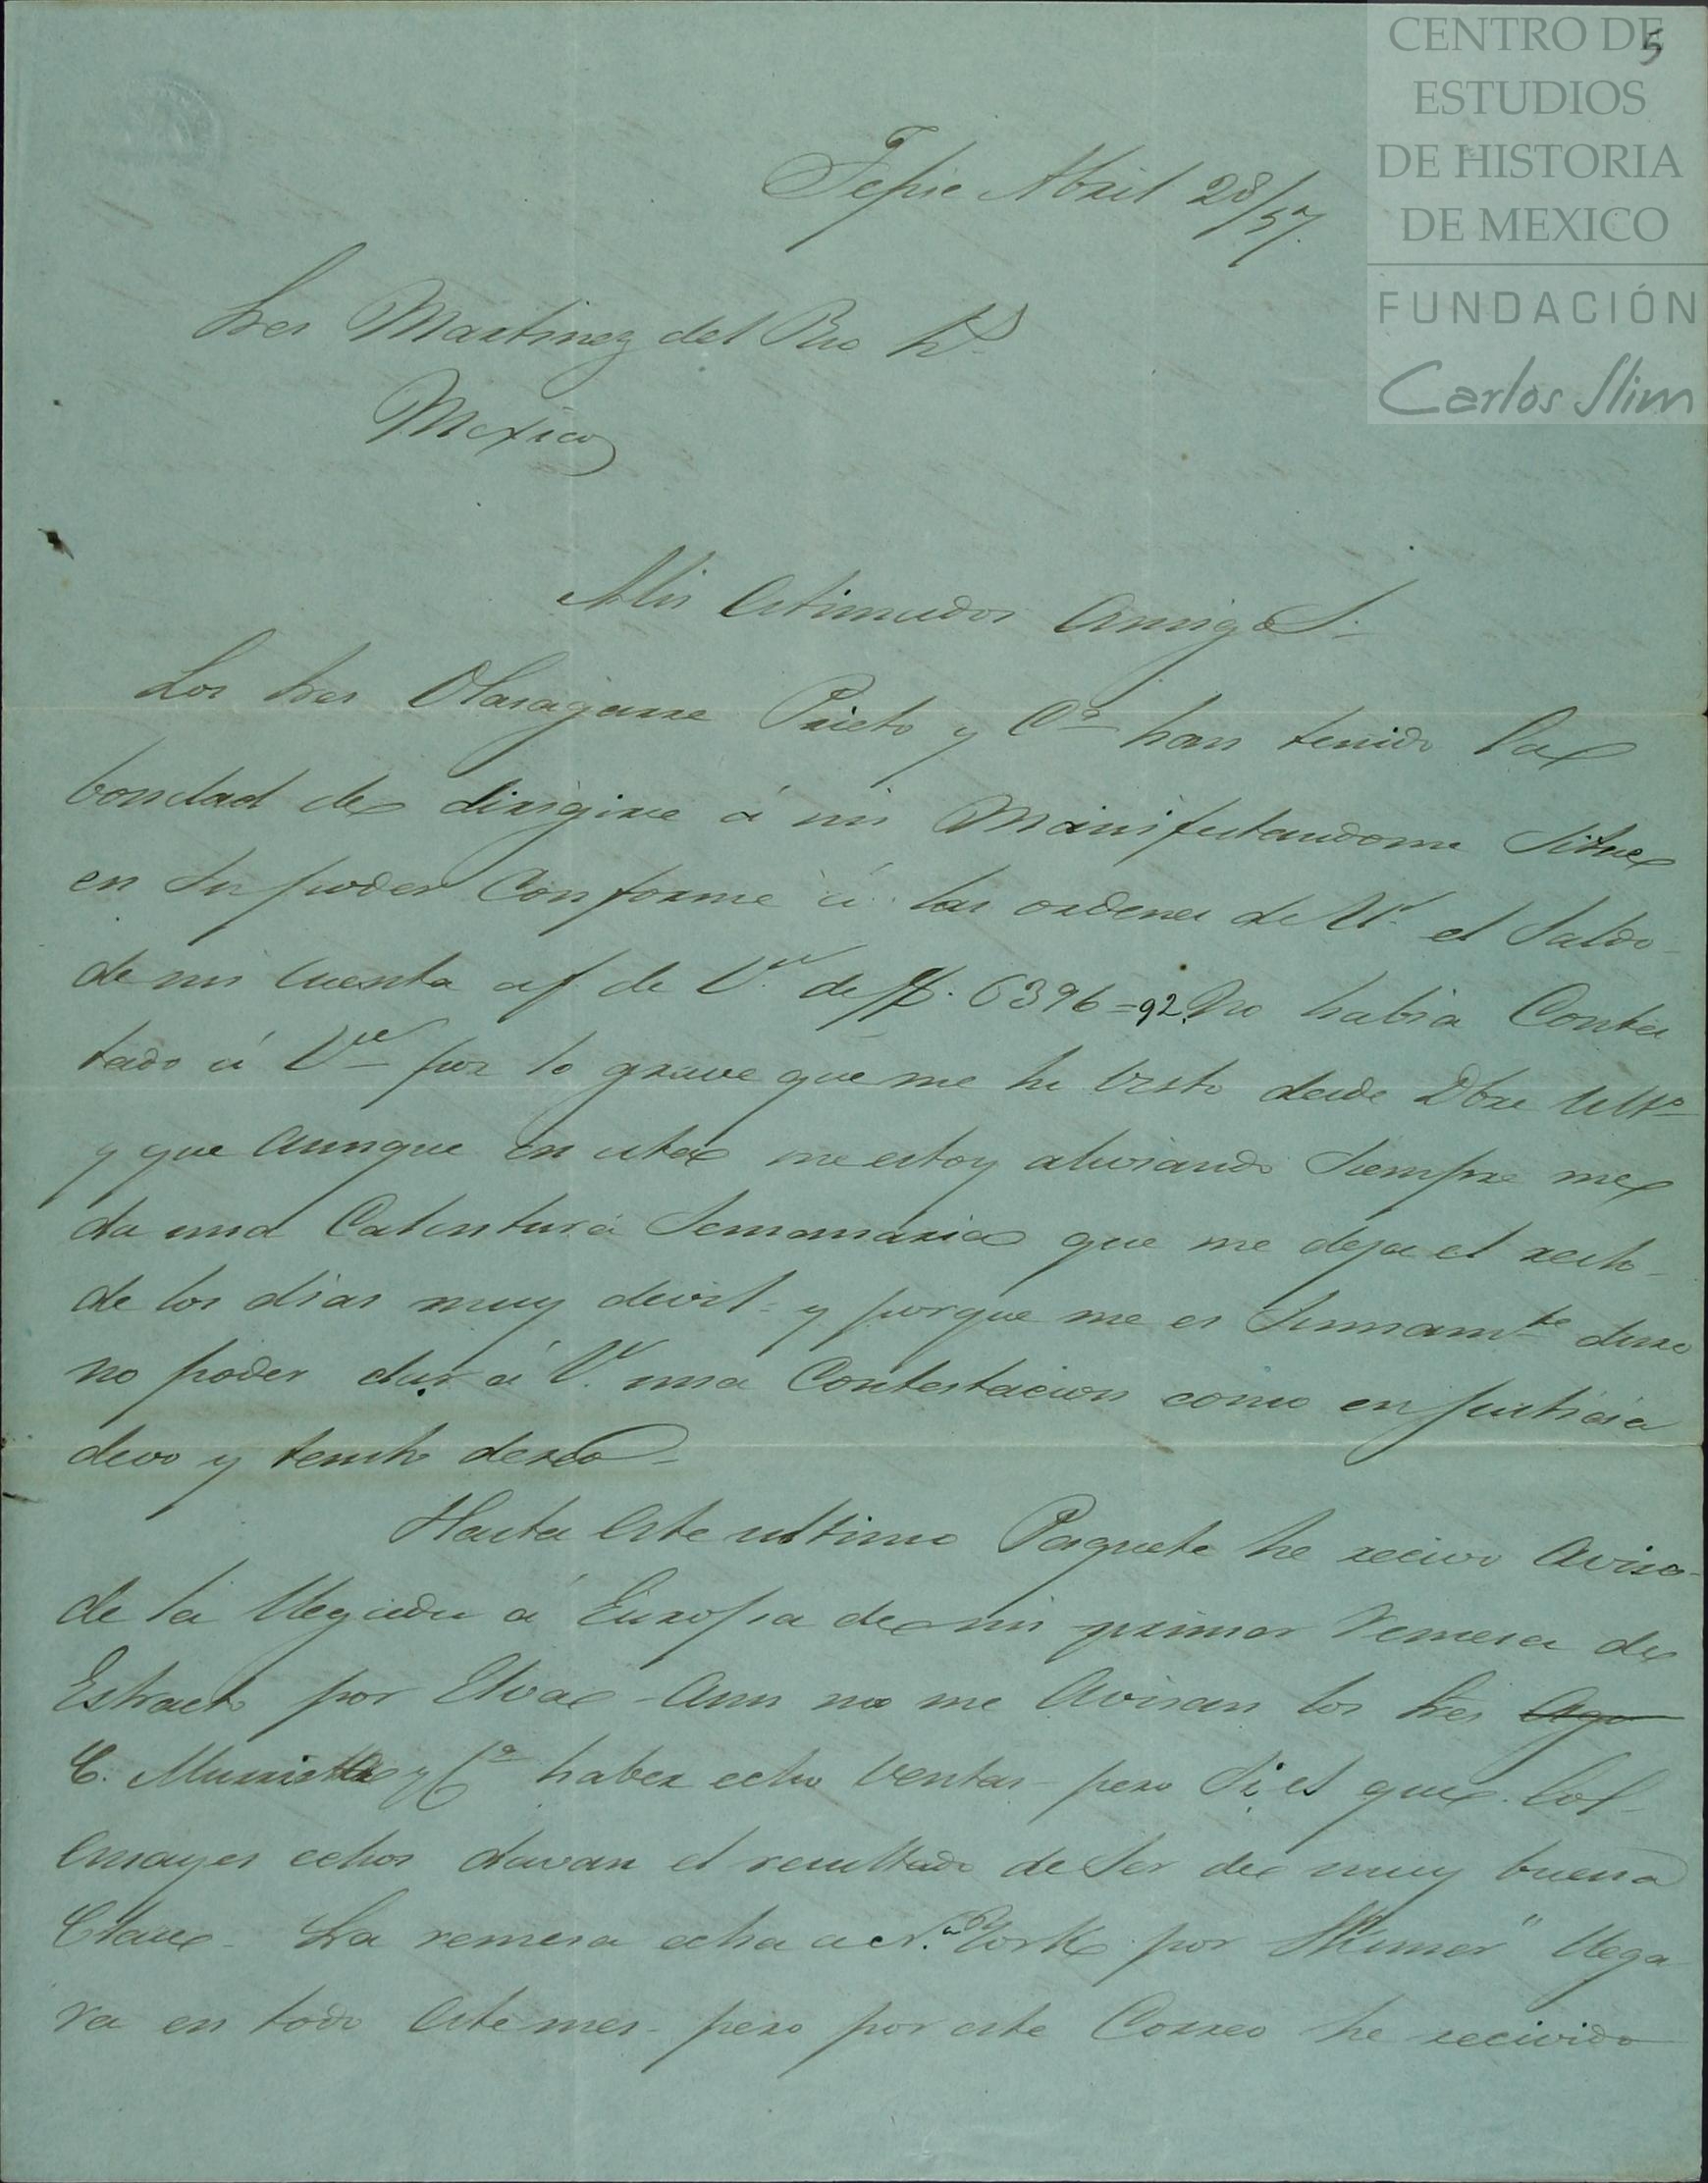 5
CENTRO DE
ESTUDIOS
DE HISTORIA
DE MEXICO
FUNDACIÓN
Carlos Slim
Tepic Abril 28/57.
Sres Martinez del Rio hs
Mexico
Mis Estimados Amigos.
Los Sres Olasagarre Prieto y Ca han tenido la
bondad de dirigirse á mi Manifestandome Situe
en Su poder Conforme á las ordenes de Vs el Saldo
de mi Cuenta af. de Vs de $. 6396=92. No habia Contes
tado á Vs por lo grave que me he visto desde Dbre Ulto
y que aunque en esta me estoy aliviando Siempre me
da una Calentura Semanaria que me deja el resto
de los dias muy devil y porque me es Sumamte duro
no poder dar á Vs una Contestacion como en justicia
devo y tento deseo
Hasta este ultimo Paquete he recivo Aviso
de la llegada á Europa de mi primer Remesa de
Estracto por Elva - Aun no me Avisan los Sres
C. Murrietta y Ca haber echo Ventas - pero Si es que los
Ensayes echos davan el resultado de Ser de muy buena
Clase. La remesa echa a New York por llega
ra en todo este mes - pero por este Correo he recivido